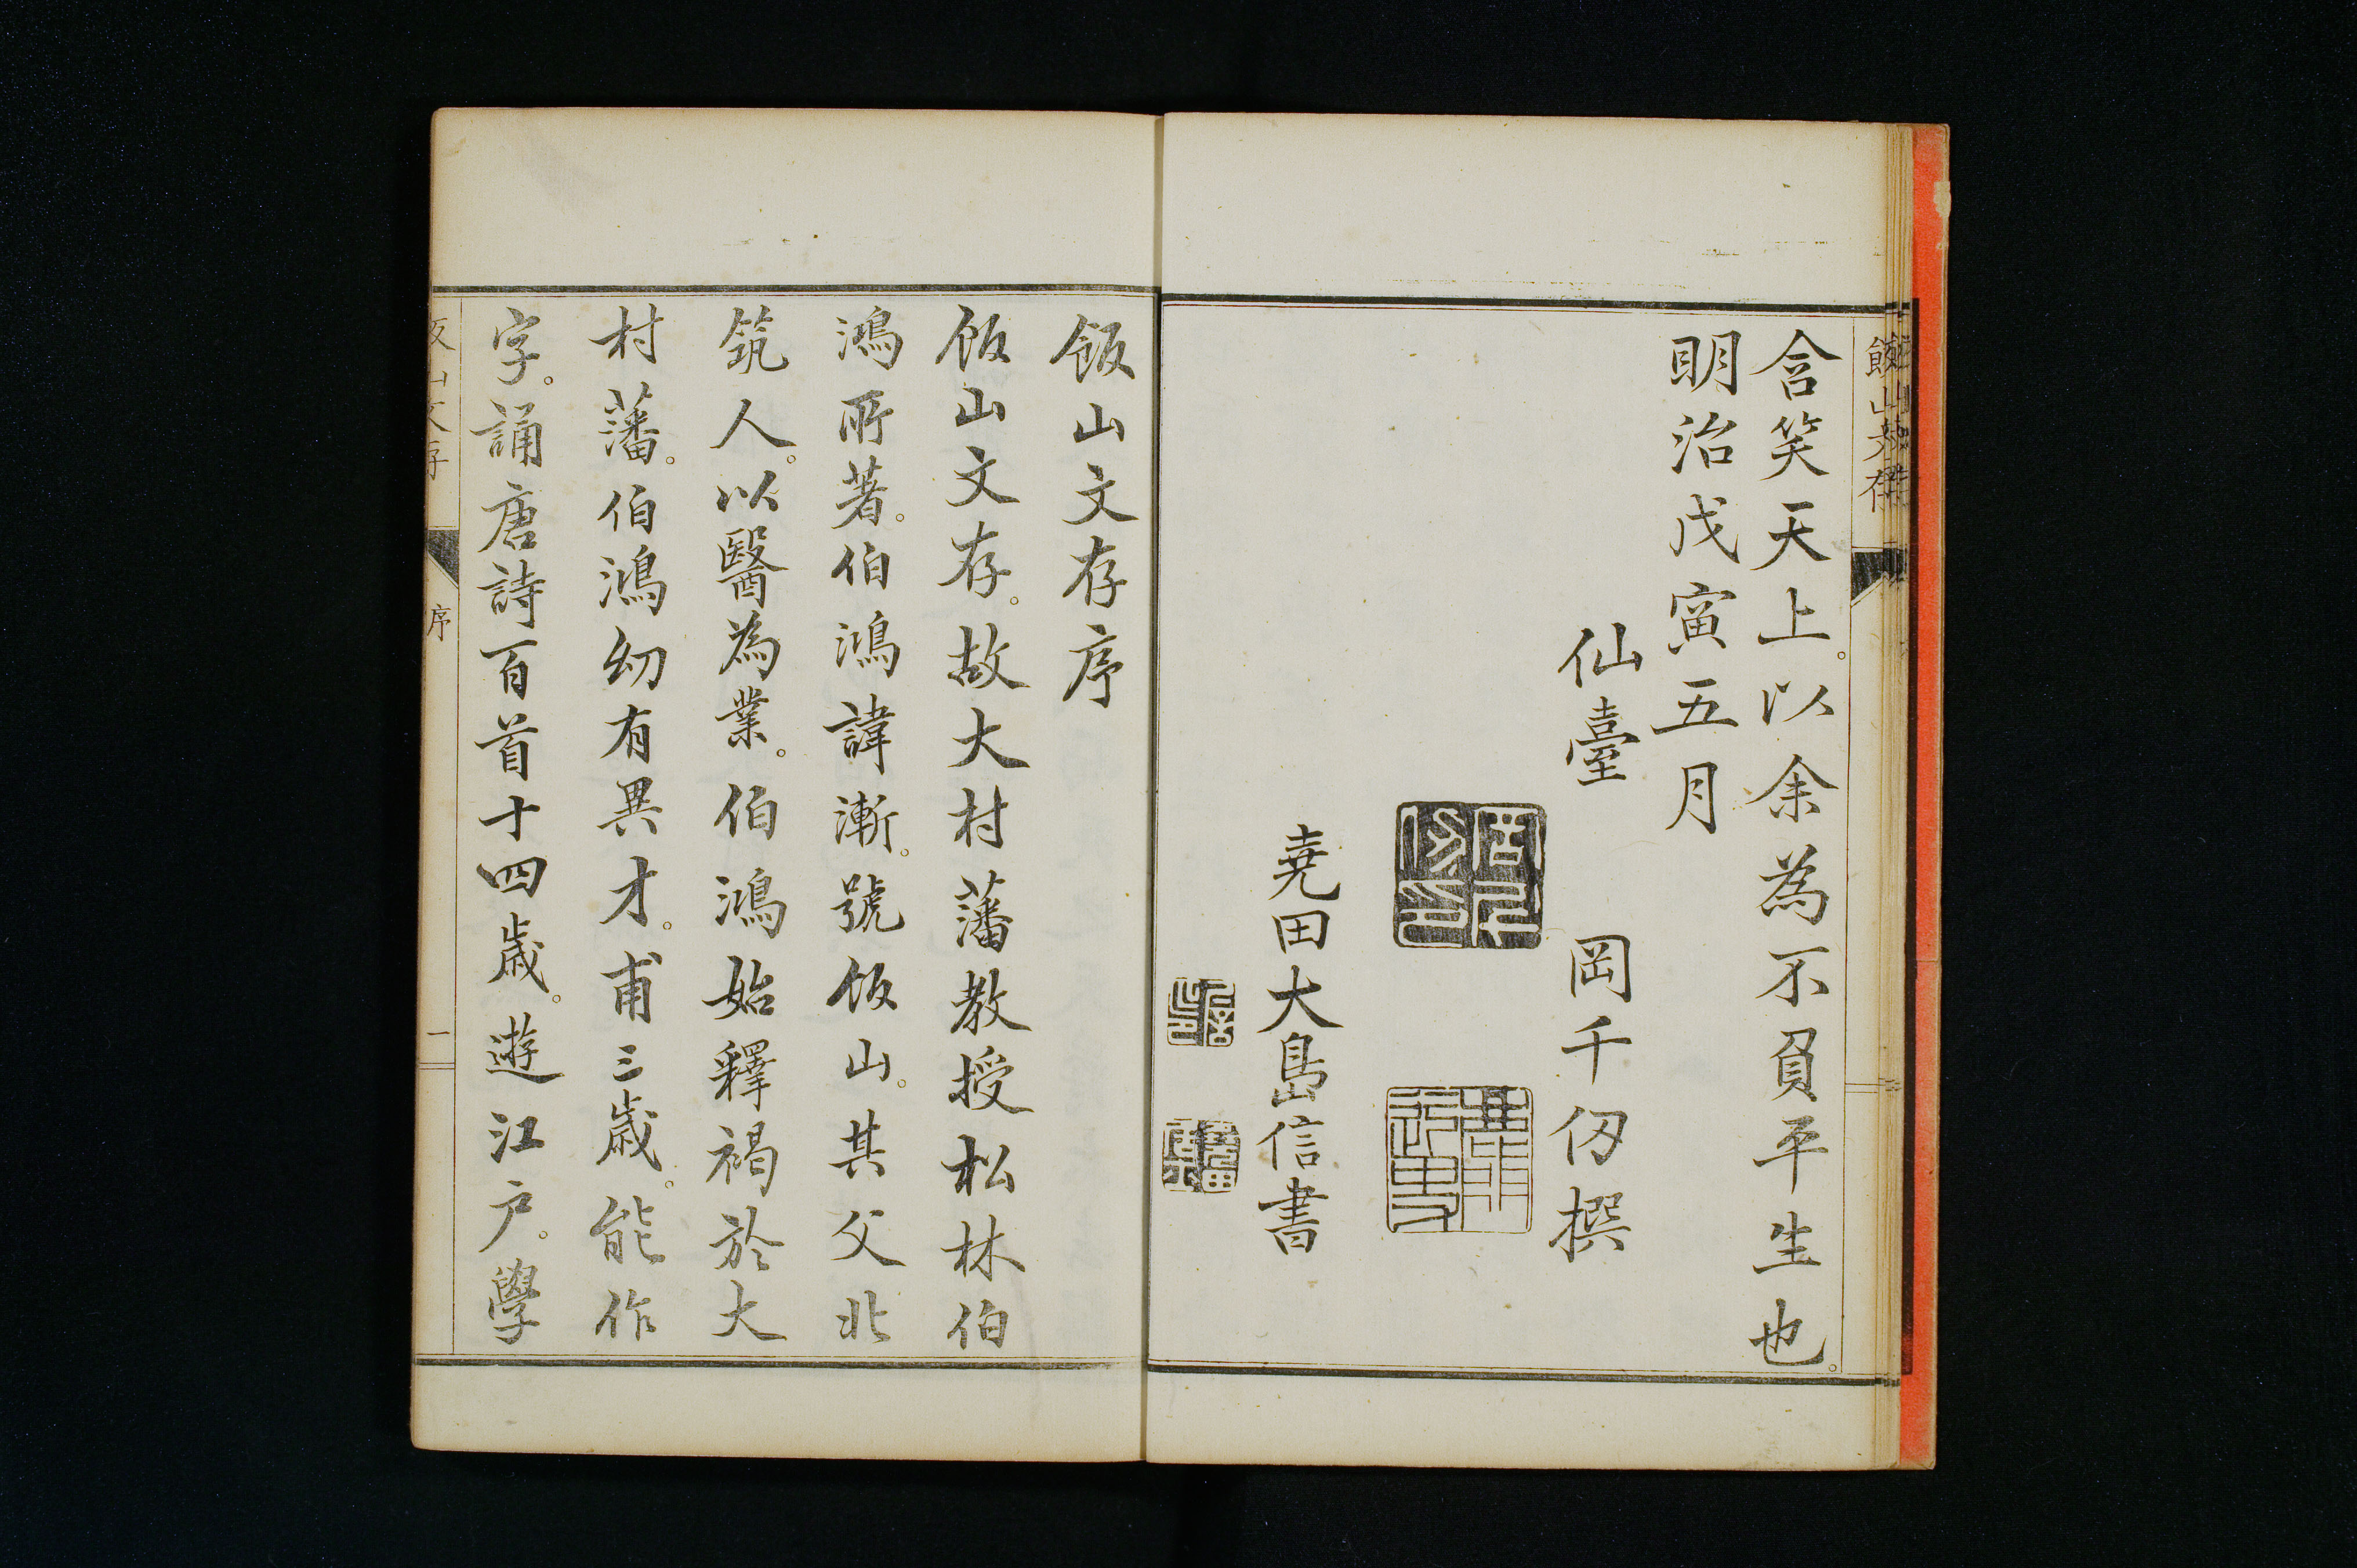 含笑天上。以余為不負平生也。
明治戊寅五月
仙臺　岡千仞撰
堯田大島信書
飯山文存序
飯山文存。故大村藩教授松林伯
鴻所著。伯鴻諱漸。號飯山。其父北
筑人。以醫為業。伯鴻始釋褐於大
村藩。伯鴻幼有異才。甫三歲。能作
字。誦唐詩百首十四歲。遊江戶。學
序
一